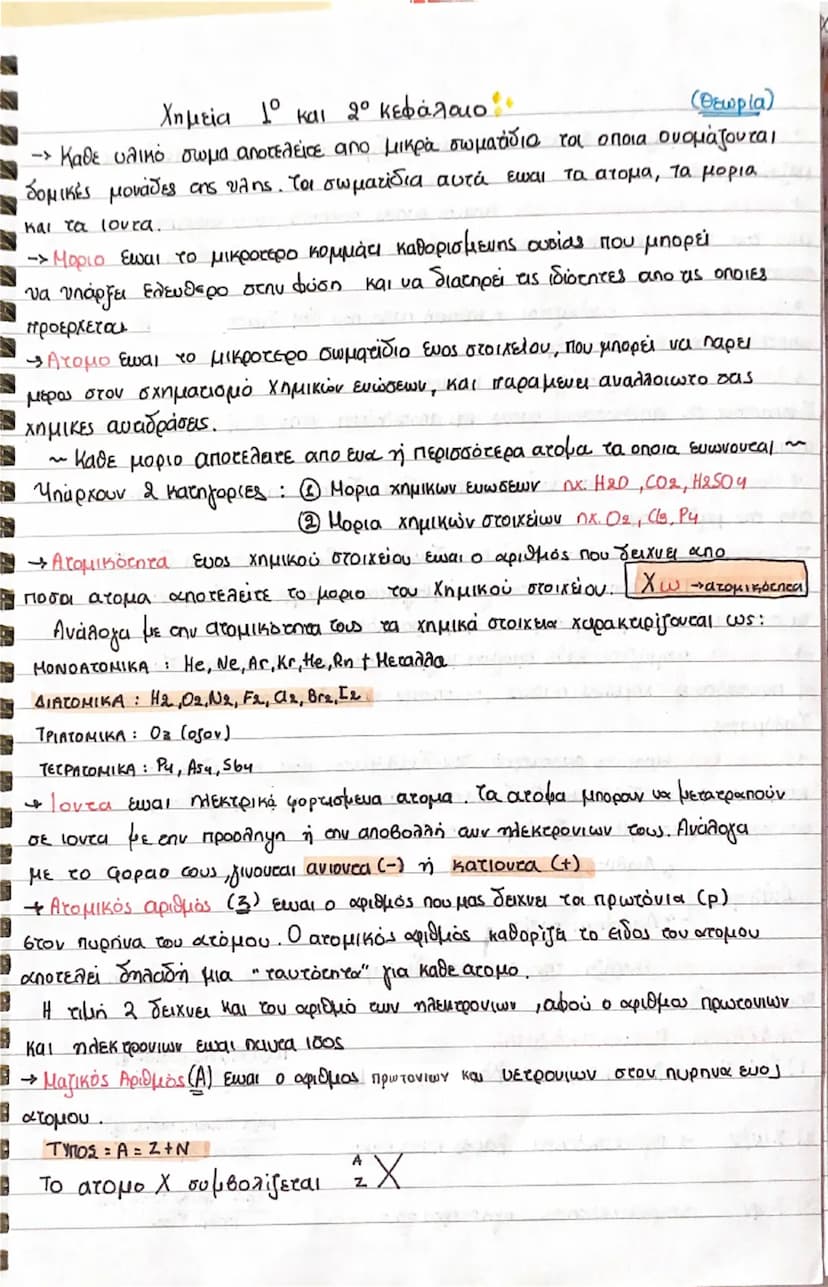 Χημεία 1º και 2º κεφάλαιο (Θεωρία)
→ Καθε υλικό σωμα αποτελείτε απο μικρα σωματίδια τα οποια ονομάζονται
δομικές μονάδες της υλης. Τα σωματίδια αυτά ειναι τα ατομα, τα μορια
και τα ιοντα.
→ Μοριο ειναι το μικροτερο κομμάτι καθορισμενης ουσίας που μπορεί
να υπάρξει ελευθερο στην φύση και να διατηρεί τις ιδιότητες απο τις οποιες
προερχεται
→ Ατομο ειναι το μικροτερο σωματίδιο ενος στοιχείου, που μπορεί να παρει
μερος στον σχηματισμό χημικών ενώσεων, και παραμενει αναλλοιωτο σας
χημικες αναδράσεις.
~ Καθε μοριο αποτελειτε απο ενα ή περισσότερα ατομα τα οποια ενωνονται ~
Υπάρχουν 2 κατηγοριες : ① Μορια χημικων ενωσεων πχ. H2O, CO2, H2SO4
② Μορια χημικών στοιχείων πχ. O2, Cl2, P4
→ Ατομικότητα ενος χημικού στοιχείου ειναι ο αριθμός που δειχνει απο
ποσα ατομα αποτελείτε το μοριο του χημικού στοιχείου. Χω → ατομικότητα
Ανάλογα με την ατομικότητα τους τα χημικά στοιχεια χαρακτιρίζονται ως:
ΜΟΝΟΑΤΟΜΙΚΑ : He, Ne, Ar, Kr, He, Rn + Μεταλλα
ΔΙΑΤΟΜΙΚΑ : H2, O2, N2, F2, Cl2, Br2, I2
ΤΡΙΑΤΟΜΙΚΑ : O3 (οζον)
ΤΕΤΡΑΤΟΜΙΚΑ : P4, As4, Sb4
→ Ιοντα ειναι ηλεκτρικά φορτισμενα ατομα. Τα ατομα μπορουν να μετατραπούν
σε ιοντα με την προσληψη ή την αποβολλή των ηλεκρονιων τους. Ανάλογα
με το φορτιο τους, γινονται ανιοντα (-) ή κατιοντα (+)
→ Ατομικός αριθμός (Z) ειναι ο αριθμός που μας δείχνει τα πρωτόνια (p)
στον πυρήνα του ατόμου. Ο ατομικός αριθμός καθορίζει το ειδος του ατομου
αποτελεί δηλαδή μια "ταυτότητα" για καθε ατομο.
Η τιμή 2 δειχνει και τον αριθμό των ηλεκτρονιων, αφού ο αριθμος πρωτονιων
και ηλεκτρονιων ειναι παντα ισος
→ Μαζικός Αριθμός (A) ειναι ο αριθμος πρωτονιων και νετρονιων στον πυρηνα ενος
ατομου.
ΤΥΠΟΣ = A = Z + N
Το ατομο Χ συμβολίζεται A Z X